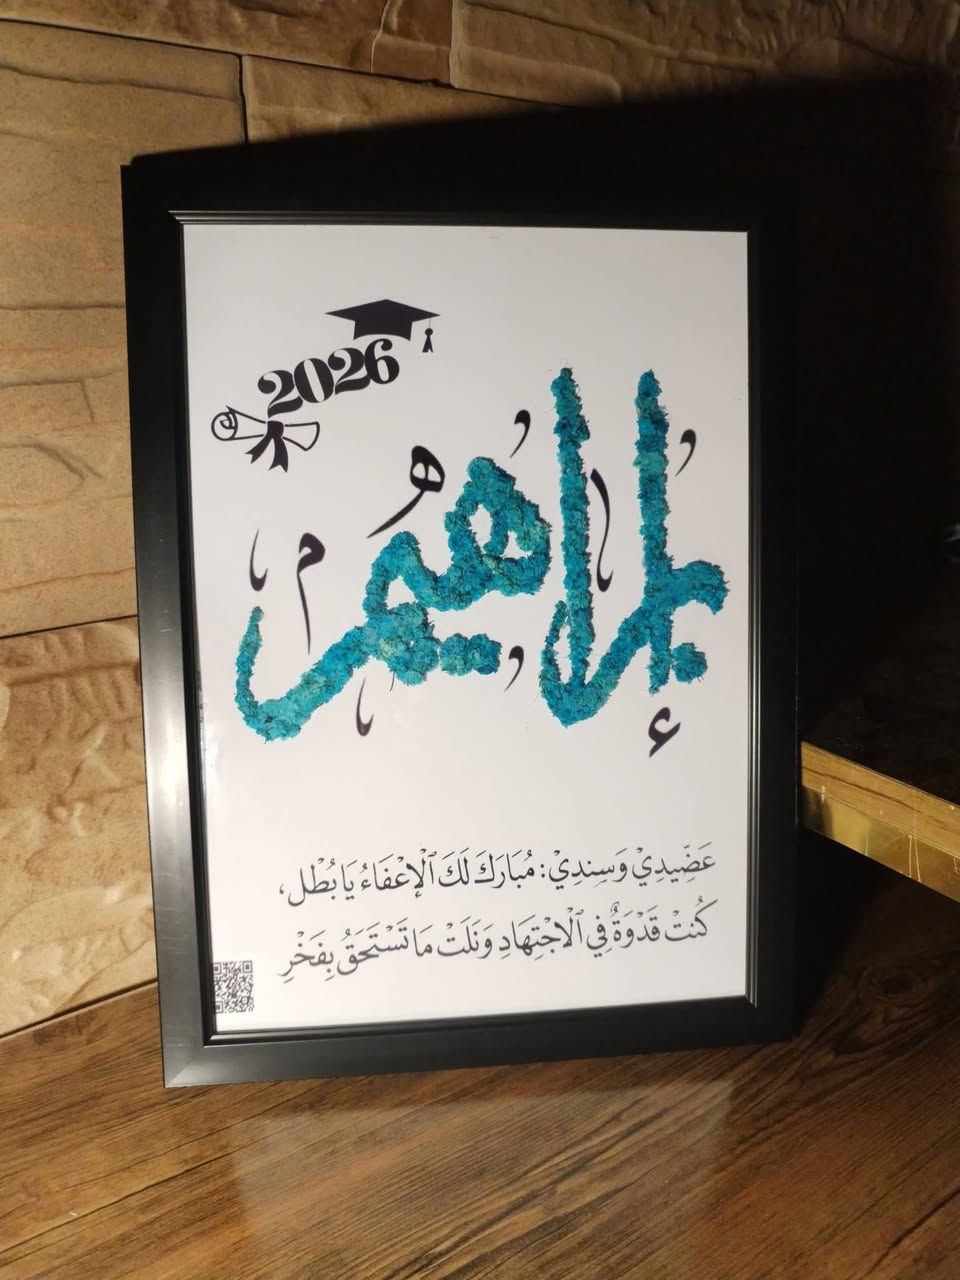 2026
إبراهيم
عَضّيدِيْ وَسِندِيْ: مُبَارَكَ لَكَ ٱلْإعْفَاءُ يَا بُطْل،
كُنتْ قَدْوَةٌ فِي ٱلْاجْتِهَادِ وَنَلَتْ مَا تَسْتَحَقُ بِفَخْرِ